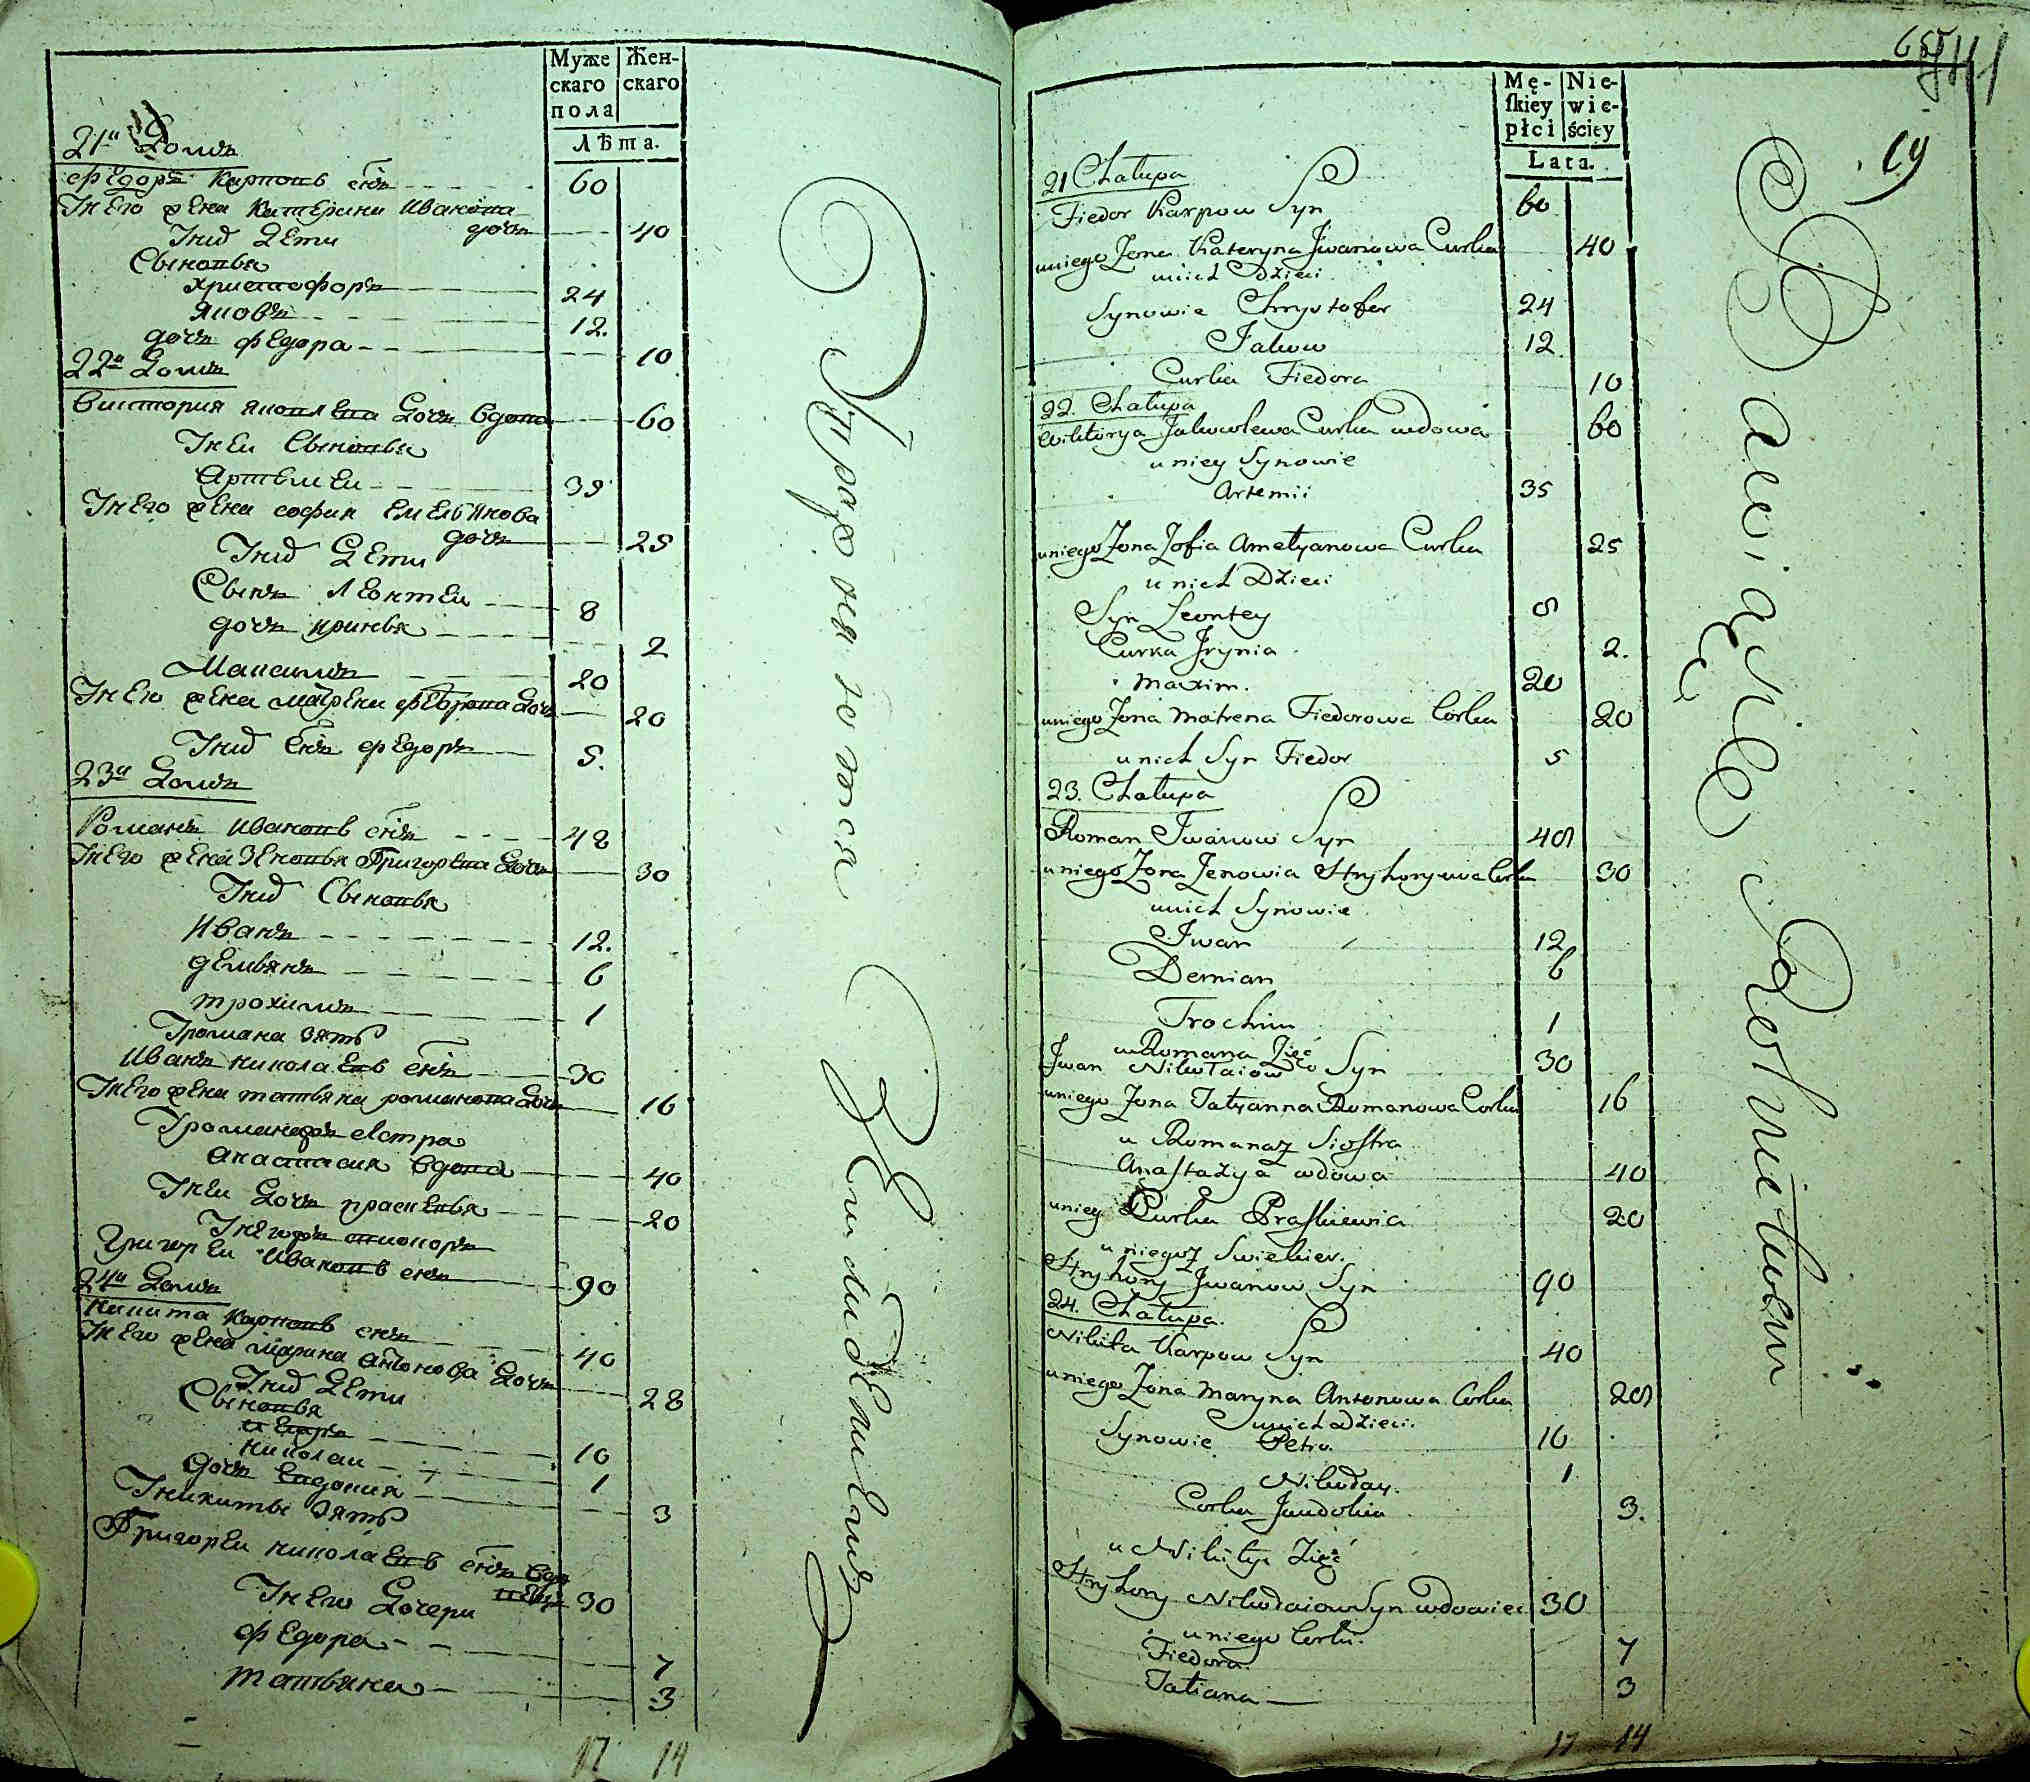 Муже
скаго
пола
Жен-
скаго
Лѣта.
21й Домъ
Федоръ Карповъ снъ 60
Унего жена Катерина Иванова
дочь 40
Унихъ Дети
Сыновья
Христофоръ 24
Яковъ 12.
дочь Федора 10
22й Домъ
Виктория Яковлева Дочь вдова 60
Унеи Сыновья
Артемеи 35
Унего жена софия Емельянова
дочь 25
Унихъ Дети
Сынъ Леонтеи 8
дочь иринья 2
Максимъ 20
Унего жена матрена федорова Дочь 20
Унихъ снъ федоръ 5.
23й Домъ
Романъ Ивановъ снъ 48
Унего жена Зеновья Григорева Дочь 30
Унихъ Сыновья
Иванъ 12.
демьянъ 6
трохимъ 1
Уромана зять
Иванъ николаевъ снъ 30
Унего жена татьяна романова Дочь 16
Уроманажъ сестра
анастасия вдова 40
Унеи Дочь прасковья 20
Унегожъ
Григореи Ивановъ снъ 90
24й Домъ
Никита Карповъ снъ 40
Унего жена марина антонова Дочь 28
Унихъ Дети
Сыновья
петръ 10
николаи 1
дочь Евдокия 3
Уникиты зять
Григореи николаевъ снъ вдо
вецъ 30
Унего Дочери
федора 7
татьяна 3
17 14
Продолжается
За подсудениемъ
Mę-
skiey
płci
Nie-
wie-
ściey
Lata.
741
19
21 Chałupa
Fiedor Karpow Syn 60
uniego Zona Kateryna Jwanowa Curka 40
unich Dzieci
Synowie Chrystofer 24
Jakow 12
Curka Fiedora 10
22. Chałupa
Wiktorya Jakowlewa Curka wdowa 60
uniey Synowie
Artemii 35
uniego Zona Zofia Ametyanowa Curka 25
unich Dzieci
Syn Leontey 8
Curka Jrynia 2.
Maxim. 20
uniego Zona Matrena Fiedorowa Corka 20
unich Syn Fiedor 5
23. Chałupa
Roman Jwanow Syn 48
uniego Zona Zenowia Hryhorywa Corka 30
unich Synowie
Jwan 12
Demian 6
Trochim 1
u Romana Zięć
Jwan Nikołaiow Syn 30
uniego Zona Tatyanna Romanowa Corka 16
u Romanaż Siostra
Anastazya wdowa 40
uniey Curka Praskiewia 20
u niegoż Swiekier.
Hryhory Jwanow Syn 90
24. Chałupa.
Nikita Karpow Syn 40
uniego Zona Maryna Antonowa Corka 28
unich dzieci.
Synowie Petro. 10
Nikołay. 1
Corka Jewdokia 3.
u Nikity Zięć
Hryhory Nikołaiow Syn wdowiec 30
uniego Corki.
Fiedora. 7
Tatiana 3
17 14